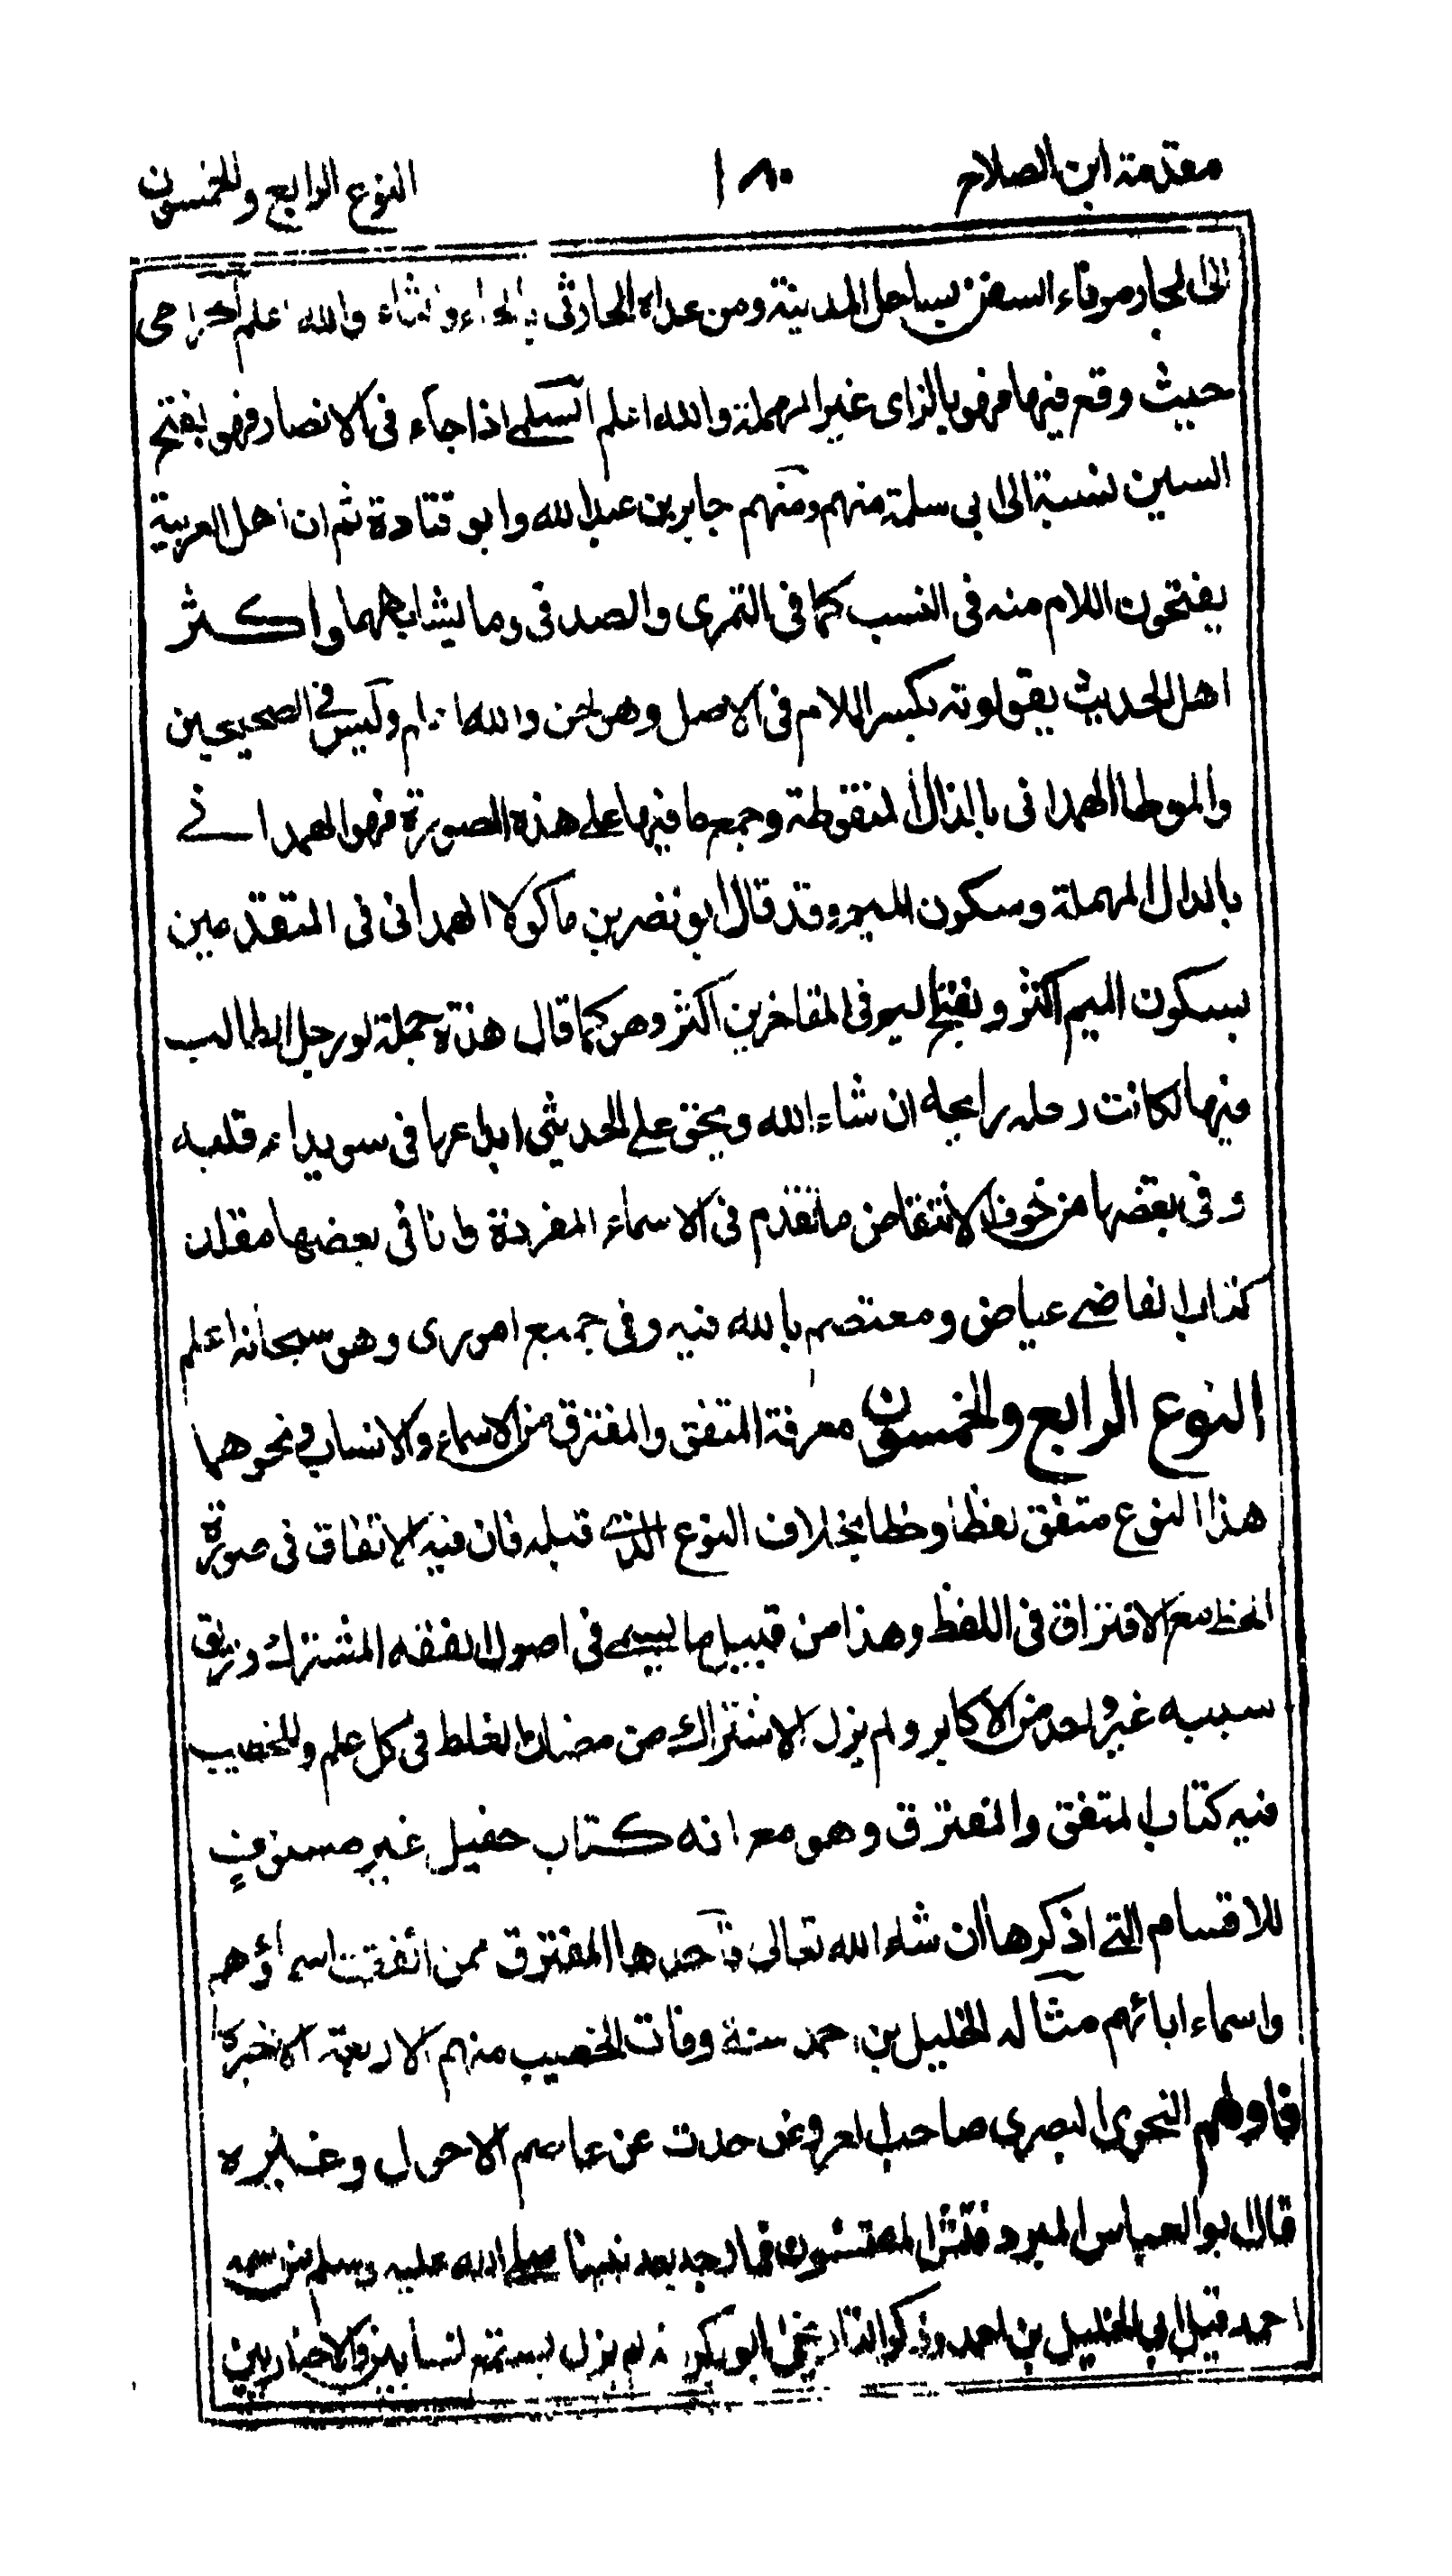 مقدمة ابن الصلاح ١٨٠ النوع الرابع والخمسون
الى الجار مرفاء السفن بساحل المدينة ومن عداه الحارثى بالحاء والثاء والله اعلم الحزامى
حيث وقع فيها فهو بالزاى غير المهملة والله اعلم السلمى اذا جاء فى الانصار فهو بفتح
السين نسبة الى بى سلمة منهم ومنهم جابر بن عبد الله وابو قتادة ثم ان اهل العربية
يفتحون اللام منه فى النسب كما فى النمرى والصدفى وما يشابههما واكثر
اهل الحديث يقولونه بكسر اللام فى الاصل وهو لحن والله اعلم وليس فى الصحيحين
والموطا الهمدانى بالذال المنقوطة وجمع ما فيها على هذه الصورة فهو الهمدانى
بالدال المهملة وسكون الميم وقد قال ابو نصر بن ماكولا الهمدانى فى المتقدمين
بسكون الميم اكثر وبفتح الميم فى المتاخرين اكثر وهو كما قال هذه جملة لو رحل الطالب
فيها لكانت رحلة رابحة ان شاء الله ويحق على الحديثى ايداعها فى سويداء قلبه
وفى بعضها من خوف الانتقاض ما تقدم فى الاسماء المفردة وانا فى بعضها مقلد
كتاب القاضى عياض ومعتصم بالله فيه وفى جميع امورى وهو سبحانه اعلم
النوع الرابع والخمسون معرفة المتفق والمفترق من الاسماء والانساب ونحوهما
هذا النوع متفق لفظا وخطا بخلاف النوع الذى قبله فان فيه الاتفاق فى صورة
الخط مع الافتراق فى اللفظ وهذا من قبيل ما يسمى فى اصول الفقه المشترك وزلق
بسببه غير واحد من الاكابر ولم يزل الاشتراك من مضان الغلط فى كل علم وللخطيب
فيه كتاب المتفق والمفترق وهو مع انه كتاب حفيل غير مستوف
للاقسام التى اذكرها ان شاء الله تعالى فاحدها المفترق ممن اتفقت اسماؤهم
واسماء ابائهم مثاله الخليل بن احمد ستة وفات الخصيب منهم الاربعة الاخيرة
فاولهم النحوى البصرى صاحب العروض حدث عن عاصم الاحول وغيره
قال ابو العباس المبرد فتش المفتشون فما وجد بعد نبينا صلى الله عليه وسلم من اسمه
احمد قبل ابى الخليل بن احمد وذكر التاريخى ابو بكر انه لم يزل يستمع لنسابين والاخباريين